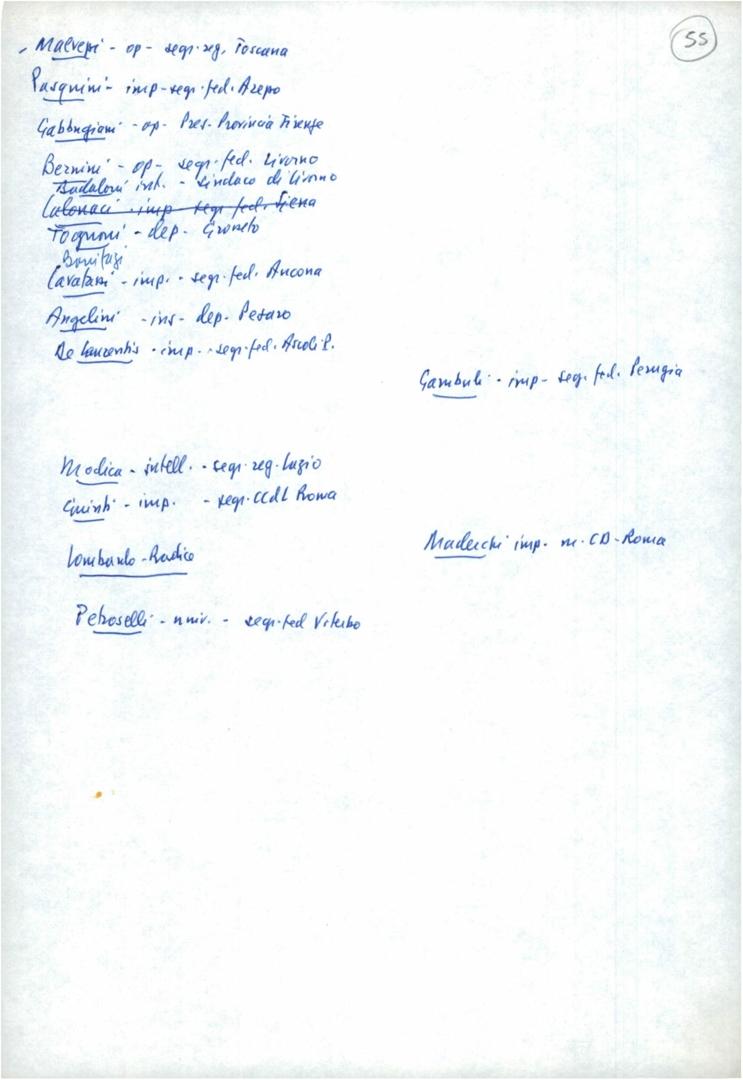 55
Malvezzi - op - segr. reg. Toscana
Pasquini - imp - segr. fed. Arezzo
Gabbugiani - op - Pres. Provincia Firenze
Bernini - op - segr. fed. Livorno
Badaloni ins. - Sindaco di Livorno
Calonaci - imp - segr. fed. Siena
Tognoni - dep - Grosseto
Bonifazi
Cavatassi - imp. - segr. fed. Ancona
Angelini - ins - dep. Pesaro
De Laurentis - imp. - segr. fed. Ascoli P.
Gambuli - imp - seg. fed. Perugia
Modica - intell. - segr. reg. Lazio
Giunti - imp. - segr. CCdL Roma
Madecchi imp. m. CD - Roma
Lombardo-Radice
Petroselli - univ. - segr. fed Viterbo